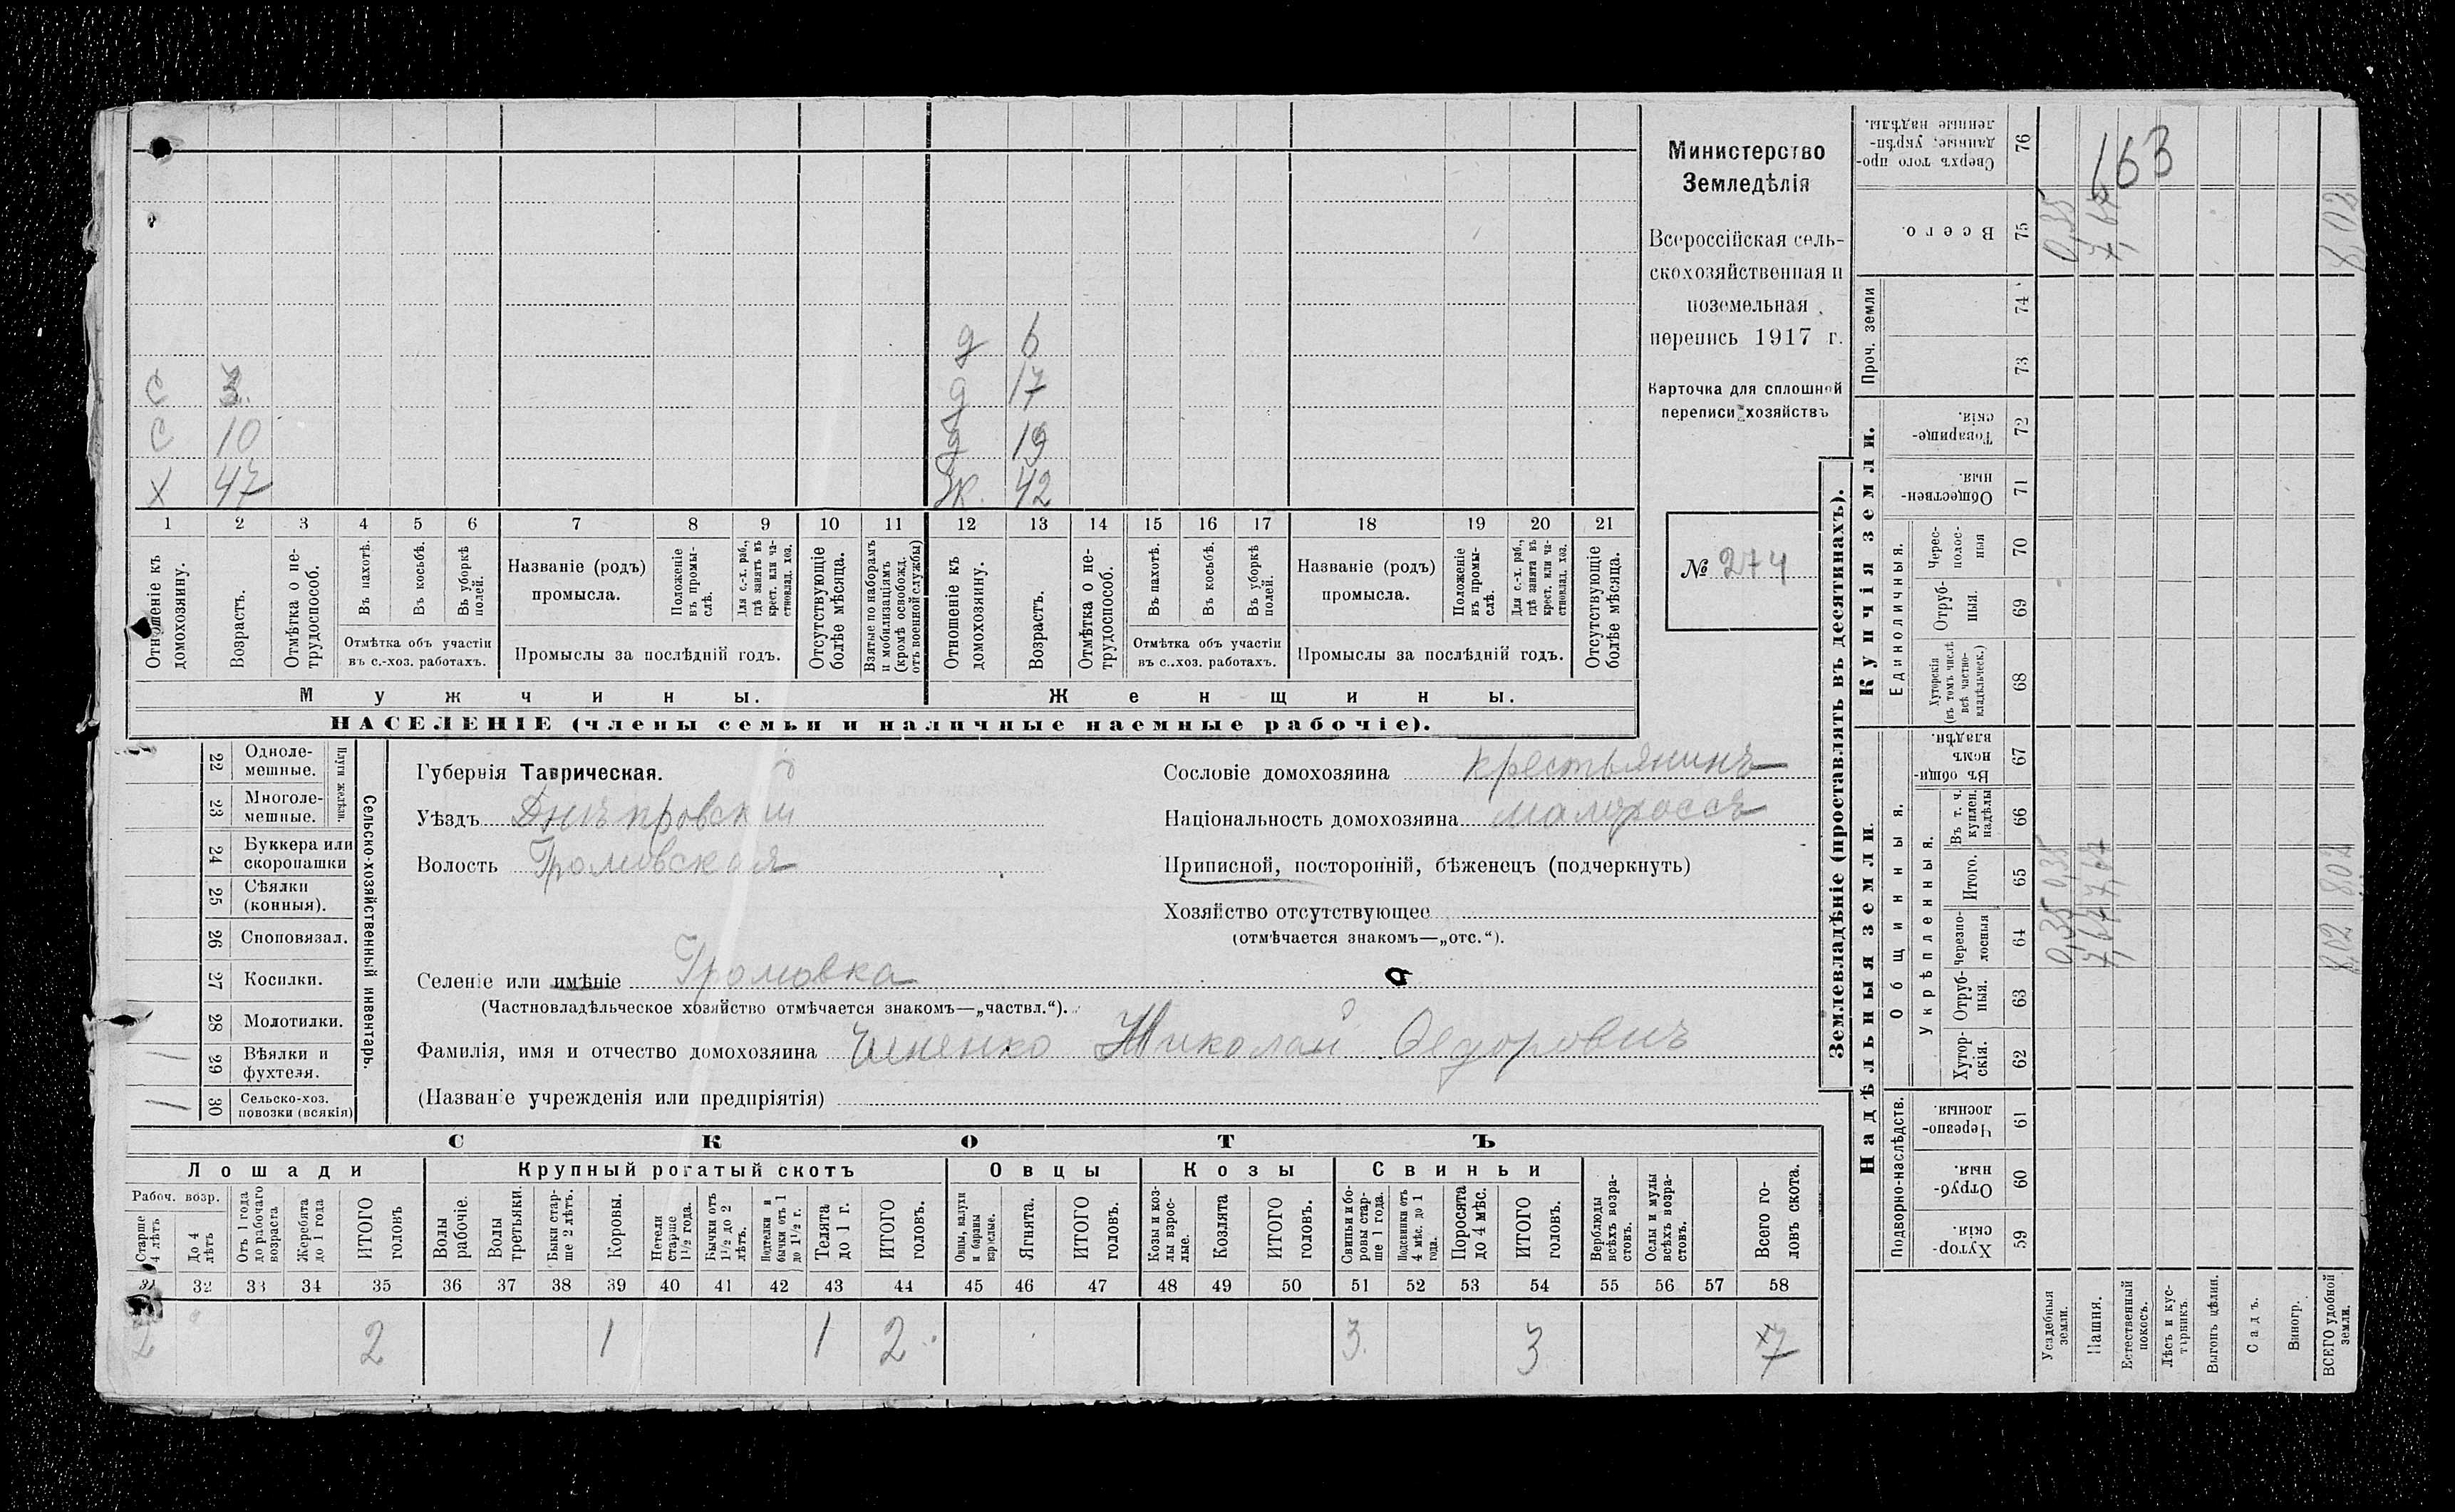 с 3
с 10
х 47
д 6
д 17
д 19
ж. 42
1 2 3 4 5 6 7 8 9 10 11 12 13 14 15 16 17 18 19 20 21
Отношеніе къ домохозяину.
Возрастъ.
Отмѣтка о нетрудоспособ.
Въ пахотѣ.
Въ косьбѣ.
Въ уборкѣ полей.
Отмѣтка объ участіи
въ с.-хоз. работахъ.
Названіе (родъ)
промысла.
Положеніе въ промыслѣ.
Для с.-х. раб., гдѣ занятъ въ крест. или частновлад. хоз.
Промыслы за послѣдній годъ.
Отсутствующіе болѣе мѣсяца.
Взятые по наборамъ и мобилизаціямъ (кромѣ освобожд. отъ военной службы)
Отношеніе къ домохозяину.
Возрастъ.
Отмѣтка о нетрудоспособ.
Въ пахотѣ.
Въ косьбѣ.
Въ уборкѣ полей.
Отмѣтка объ участіи
въ с.-хоз. работахъ.
Названіе (родъ)
промысла.
Положеніе въ промыслѣ.
Для с.-х. раб., гдѣ занята въ крест. или частновлад. хоз.
Промыслы за послѣдній годъ.
Отсутствующіе болѣе мѣсяца.
Мужчины. Женщины.
НАСЕЛЕНІЕ (члены семьи и наличные наемные рабочіе).
Министерство
Земледѣлія
Всероссійская сель-
скохозяйственная и
поземельная
перепись 1917 г.
Карточка для сплошной
переписи хозяйствъ
№ 274
22 Одноле-
мешные.
23 Многоле-
мешные.
Плуги желѣзн.
24 Буккера или
скоропашки
25 Сѣялки
(конныя).
26 Сноповязал.
27 Косилки.
28 Молотилки.
1 29 Вѣялки и
фухтеля.
1 30 Сельско-хоз.
повозки (всякія)
Сельско-хозяйственный инвентарь.
Губернія Таврическая.
Уѣздъ Днѣпровскій
Волость Громовская
Селеніе или имѣніе Громовка
(Частновладѣльческое хозяйство отмѣчается знакомъ—„частвл.“).
Фамилія, имя и отчество домохозяина Николай Федоровичъ
(Названіе учрежденія или предпріятія)
Сословіе домохозяина крестьянинъ
Національность домохозяина малороссъ
Приписной, посторонній, бѣженецъ (подчеркнуть)
Хозяйство отсутствующее
(отмѣчается знакомъ—„отс.“).
СКОТЪ
Лошади Крупный рогатый скотъ Овцы Козы Свиньи
Рабоч. возр.
Старше 4 лѣтъ
До 4 лѣтъ
Отъ 1 года до рабочаго возраста
Жеребята до 1 года
ИТОГО головъ
Волы рабочіе.
Волы третьяки.
Быки старше 2 лѣтъ.
Коровы.
Нетели старше 1½ года.
Бычки отъ 1½ до 2 лѣтъ.
Подтелки и бычки отъ 1 до 1½ г.
Телята до 1 г.
ИТОГО головъ.
Овцы, валухи и бараны взрослые.
Ягнята.
ИТОГО головъ.
Козы и козлы взрослые.
Козлята
ИТОГО головъ.
Свиньи и боровы старше 1 года.
Подсвинки отъ 4 мѣс. до 1 года.
Поросята до 4 мѣс.
ИТОГО головъ.
Верблюды всѣхъ возрастовъ.
Ослы и мулы всѣхъ возрастовъ.
Всего головъ скота.
31 32 33 34 35 36 37 38 39 40 41 42 43 44 45 46 47 48 49 50 51 52 53 54 55 56 57 58
2 2 1 1 2 3 3 7
Землевладѣніе (проставлять въ десятинахъ).
Купчія земли.
Надѣльныя земли.
Сверхъ того проданные, укрѣпленные надѣлы. 76
163
Всего. 75 0,35 7,67 8,02
Проч. земли 74 73
Товарищескія. 72
Общественныя. 71
Единоличныя.
Чересполосная 70
Отрубныя. 69
Хуторскія (въ томъ числѣ всѣ частновладѣльческ.) 68
Общинныя.
Въ общинномъ владѣн. 67
Укрѣпленныя.
Въ т. ч. куплен. надѣлы 66
Итого. 65 0,35 7,67 8,02
черезполосныя 64 0,35 7,67 8,02
Отрубныя. 63
Хуторскія. 62
Подворно-наслѣдств.
Черезполосныя. 61
Отрубныя. 60
Хуторскія. 59
Усадебныя земли.
Пашня.
Естественный покосъ.
Лѣсъ и кустарникъ.
Выгонъ цѣлин.
Садъ.
Виногр.
ВСЕГО удобной земли.